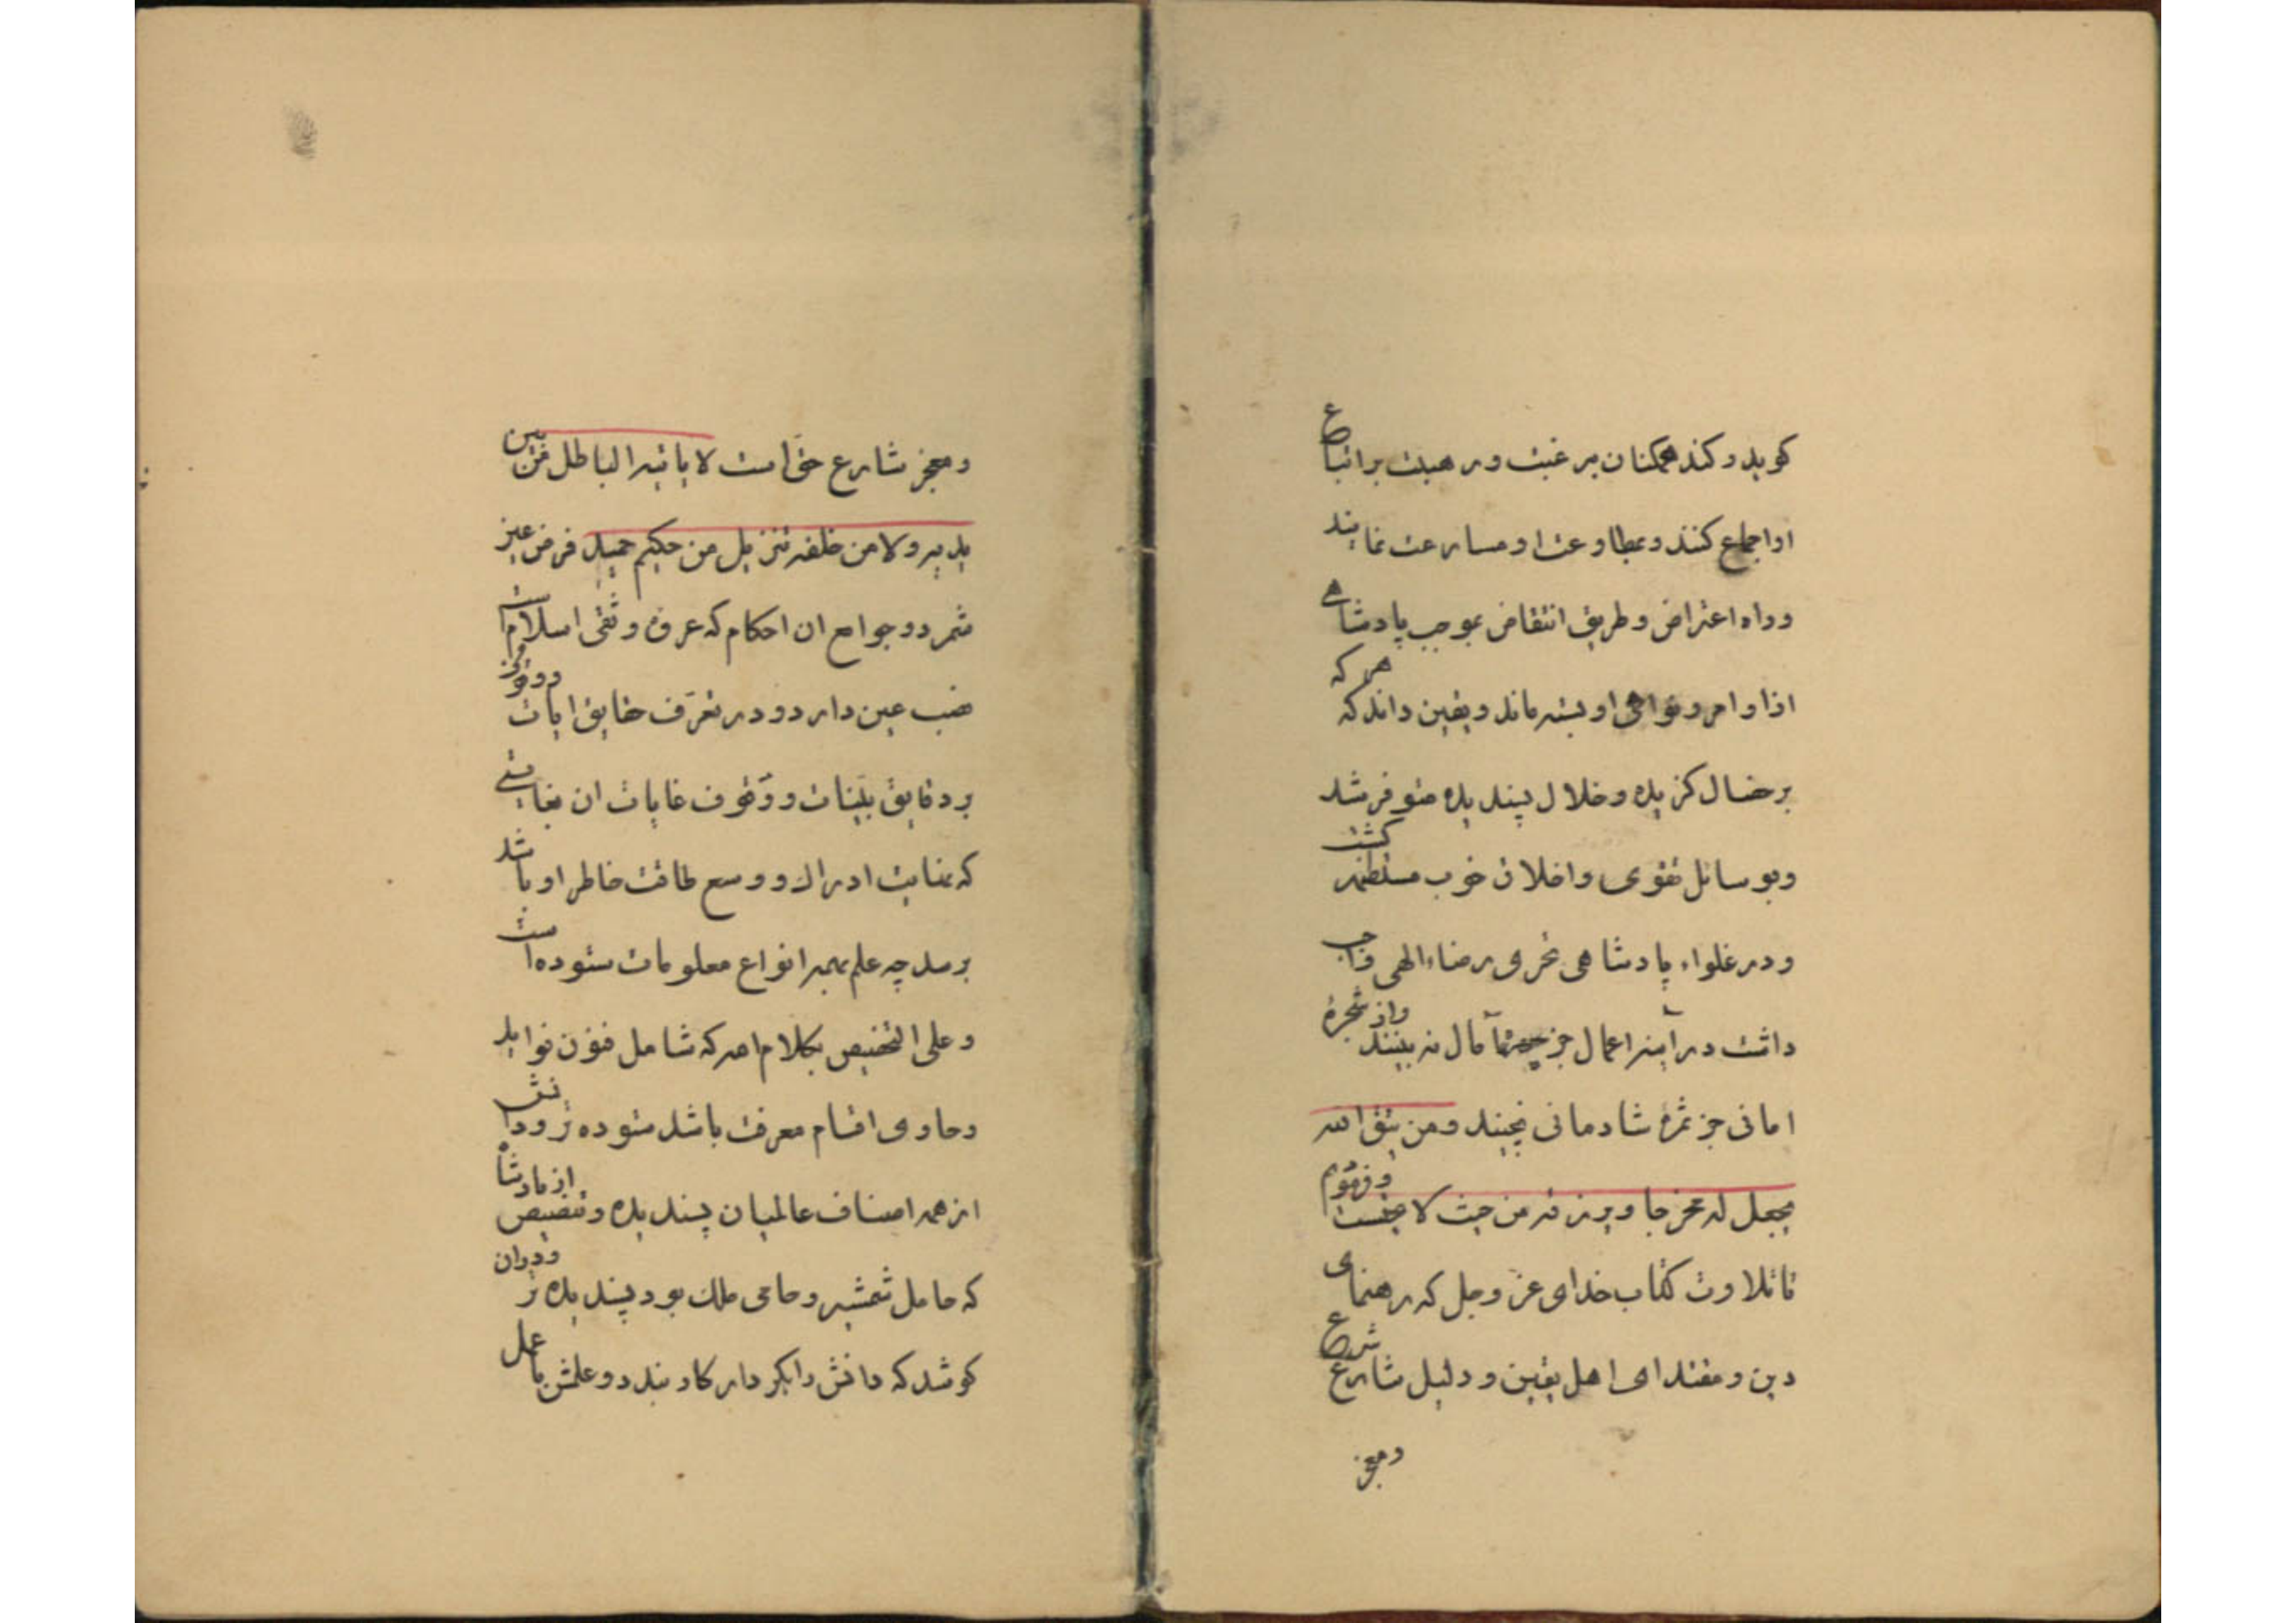 کوید وکند همکنان برغبت ورهبت براتباع
اواجماع کنند وبمطاوعت او مسارعت نمایند
وراه اعتراض وطریق انتقاض بموجب پادشاهی
اذا وامر ونواهی او بسته ماند ویقین داند که هر که
برخصال کزیده وخلال پسندیده متوفر شد
وبوسائل تقوی واخلاق خوب مستظهر کشت
ودرغلواء پادشاهی تحری رضاء الهی واجب
داشت درآینه اعمال جز آمال نه بینند واز شجرۀ
امانی جز ثمرۀ شادمانی نچیند ومن یتق الله
یجعل له مخرجا ویرزقه من حیث لا یحتسب
تاتلاوت کتاب خدای عز وجل که رهنمای
دین ومقتدای اهل یقین ودلیل شارع شرع
ومعجز
ومعجز شارع حق است لا یاتیه الباطل من بین
یدیه ولا من خلفه تنزیل من حکیم حمید فرض عین
شمرد وجوامع ان احکام که عروۀ وثقی اسلام است
نصب عین دارد ودر تعرف حقایق ایات
بر دقایق بینات ووقوف غایات ان بغایتی
که نهایت ادراک ووسع طاقت خاطر او باشد
برسد چه علم بهمه انواع معلومات ستوده است
وعلی التخصیص بکلام الله که شامل فنون فواید
وحاوی اقسام معرفت باشد ستوده تر ودانش
از همه اصناف عالمیان پسندیده وتنصیص از پادشاه
که حامل شمشیر وحامی ملک بود پسندیده تر ودران
کوشد که دانش را بکردار کار بندد وعلمش با عمل